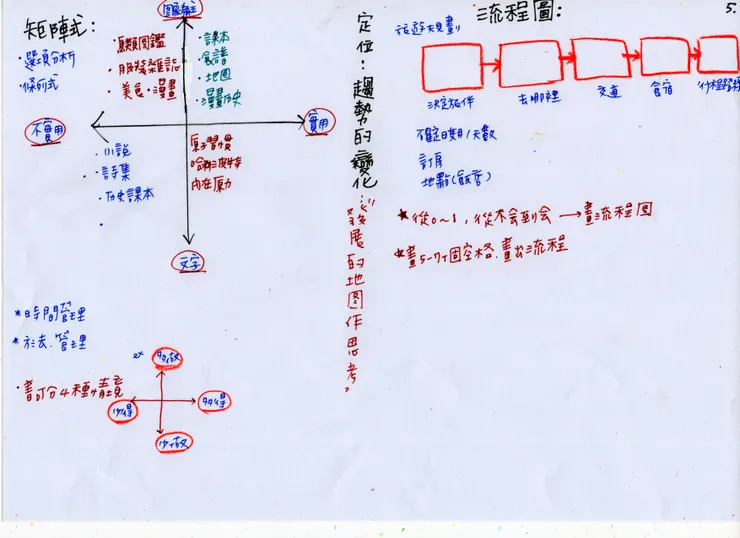 矩陣式:
·選項分析
·條列式
圖像為主
·鳥類圖鑑
·服裝雜誌
·美食·漫畫
·課本
·食譜
·地圖
·漫畫歷史
不實用
實用
·小說
·詩集
·歷史課本
·
原子習慣
哈利波特
內在原力
文字
*時間管理
管理
·書可分4種
ex
多做
少得
多得
少做
定位:趨勢的變化
發展的地圖作思考。
流程圖:
5.
旅遊規劃
決定旅伴
去哪裡
交通
食宿
確定日期/天數
訂房
地點(飯店)
*從0~1,從不会到会→畫流程圖
*畫5-7個空格.畫出流程